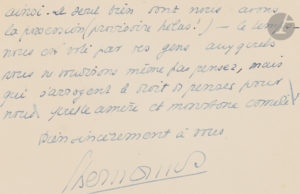 ainsi. Le demi bien dont nous avons
la possession (provisoire hélas!) — le temps
nous est volé par ces gens auxquels
nous ne voudrions même pas penser, mais
qui s'arrogent le droit de penser pour
nous. Quelle amère et monotone comédie!
Bien sincèrement à vous.
Bernanos